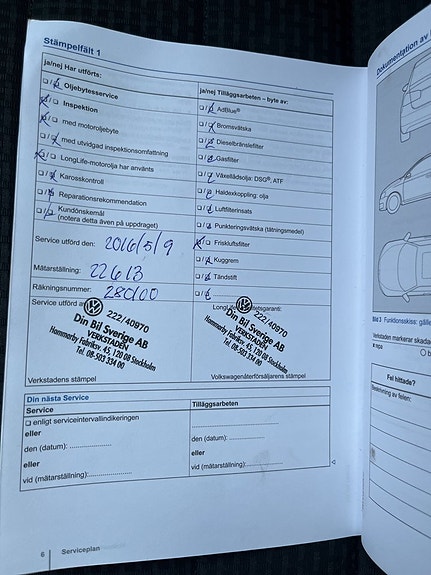 Stämpelfält 1
ja/nej Har utförts:
☐ / ☐ Oljebytesservice
☐ / ☐ Inspektion
☐ / ☐ med motoroljebyte
☐ / ☐ med utvidgad inspektionsomfattning
☐ / ☐ LongLife-motorolja har använts
☐ / ☐ Karosskontroll
☐ / ☐ Reparationsrekommendation
☐ / ☐ Kundönskemål
(notera detta även på uppdraget)
Service utförd den: 2016/5/9
Mätarställning: 22613
Räkningsnummer: 280100
Service utförd av
222/40970
Din Bil Sverige AB
VERKSTADEN
Hammarby Fabriksv. 45, 120 08 Stockholm
Tel. 08-503 334 00
Verkstadens stämpel
ja/nej Tilläggsarbeten – byte av:
☐ / ☐ AdBlue®
☐ / ☐ Bromsvätska
☐ / ☐ Dieselbränslefilter
☐ / ☐ Gasfilter
☐ / ☐ Växellådsolja: DSG®, ATF
☐ / ☐ Haldexkoppling: olja
☐ / ☐ Luftfilterinsats
☐ / ☐ Punkteringsvätska (tätningsmedel)
☐ / ☐ Friskluftsfilter
☐ / ☐ Kuggrem
☐ / ☐ Tändstift
222/40970
Din Bil Sverige AB
VERKSTADEN
Hammarby Fabriksv. 45, 120 08 Stockholm
Tel. 08-503 334 00
Volkswagenåterförsäljarens stämpel
Din nästa Service
Service
☐ enligt serviceintervallindikeringen
eller
den (datum):
eller
vid (mätarställning):
Tilläggsarbeten
den (datum):
eller
vid (mätarställning):
6 Serviceplan
Dokumentation av
Bild 3 Funktionsskiss: gälle
Verkstaden markerar skadad
x repa
Fel hittade?
Beskrivning av felen: